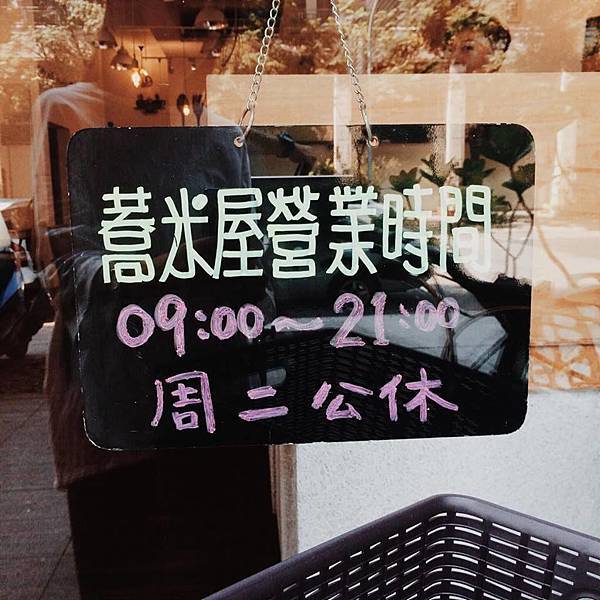 蕎米屋營業時間
09:00～21:00
周二公休